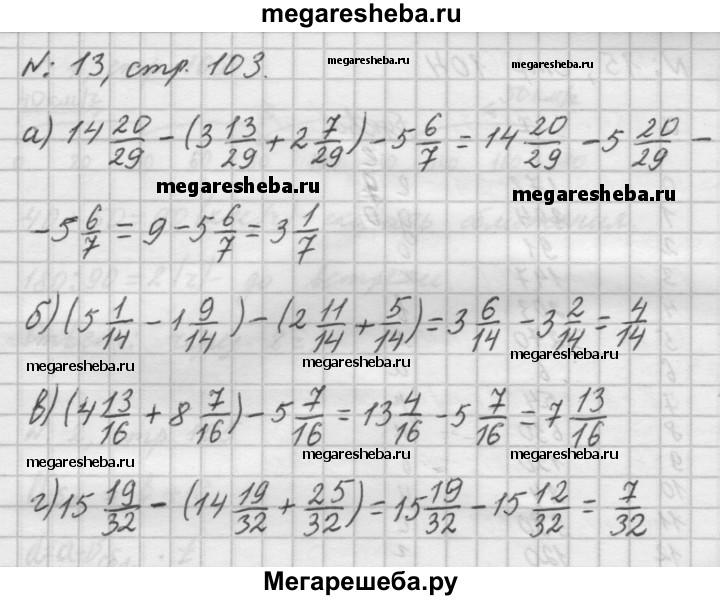 megaresheba.ru
№ 13, стр. 103.
megaresheba.ru
megaresheba.ru
а) 14 20/29 − (3 13/29 + 2 7/29) − 5 6/7 = 14 20/29 − 5 20/29 −
megaresheba.ru
megaresheba.ru
− 5 6/7 = 9 − 5 6/7 = 3 1/7
б) (5 1/14 − 1 9/14) − (2 11/14 + 5/14) = 3 6/14 − 3 2/14 = 4/14
megaresheba.ru
megaresheba.ru
megaresheba.ru
в) (4 13/16 + 8 7/16) − 5 7/16 = 13 4/16 − 5 7/16 = 7 13/16
megaresheba.ru
megaresheba.ru
megaresheba.ru
г) 15 19/32 − (14 19/32 + 25/32) = 15 19/32 − 15 12/32 = 7/32
megaresheba.ru
megaresheba.ru
megaresheba.ru
Мегарешеба.ру